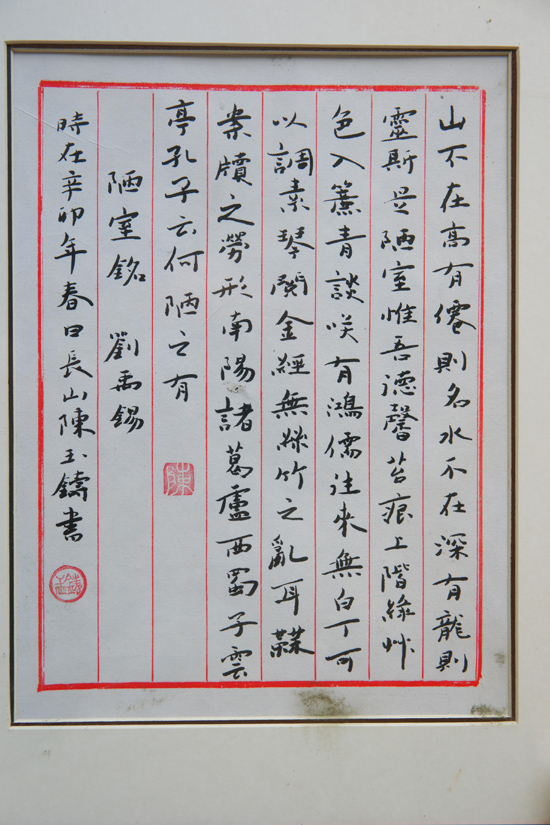 山不在高有僊則名水不在深有龍則
靈斯是陋室惟吾德馨苔痕上階綠艸
色入簾青談咲有鴻儒往來無白丁可
以調素琴閱金經無絲竹之亂耳橆
案牘之勞形南陽諸葛廬西蜀子雲
亭孔子云何陋之有
陳
陋室銘 劉禹錫
時在辛卯年春日長山陳玉鑄書